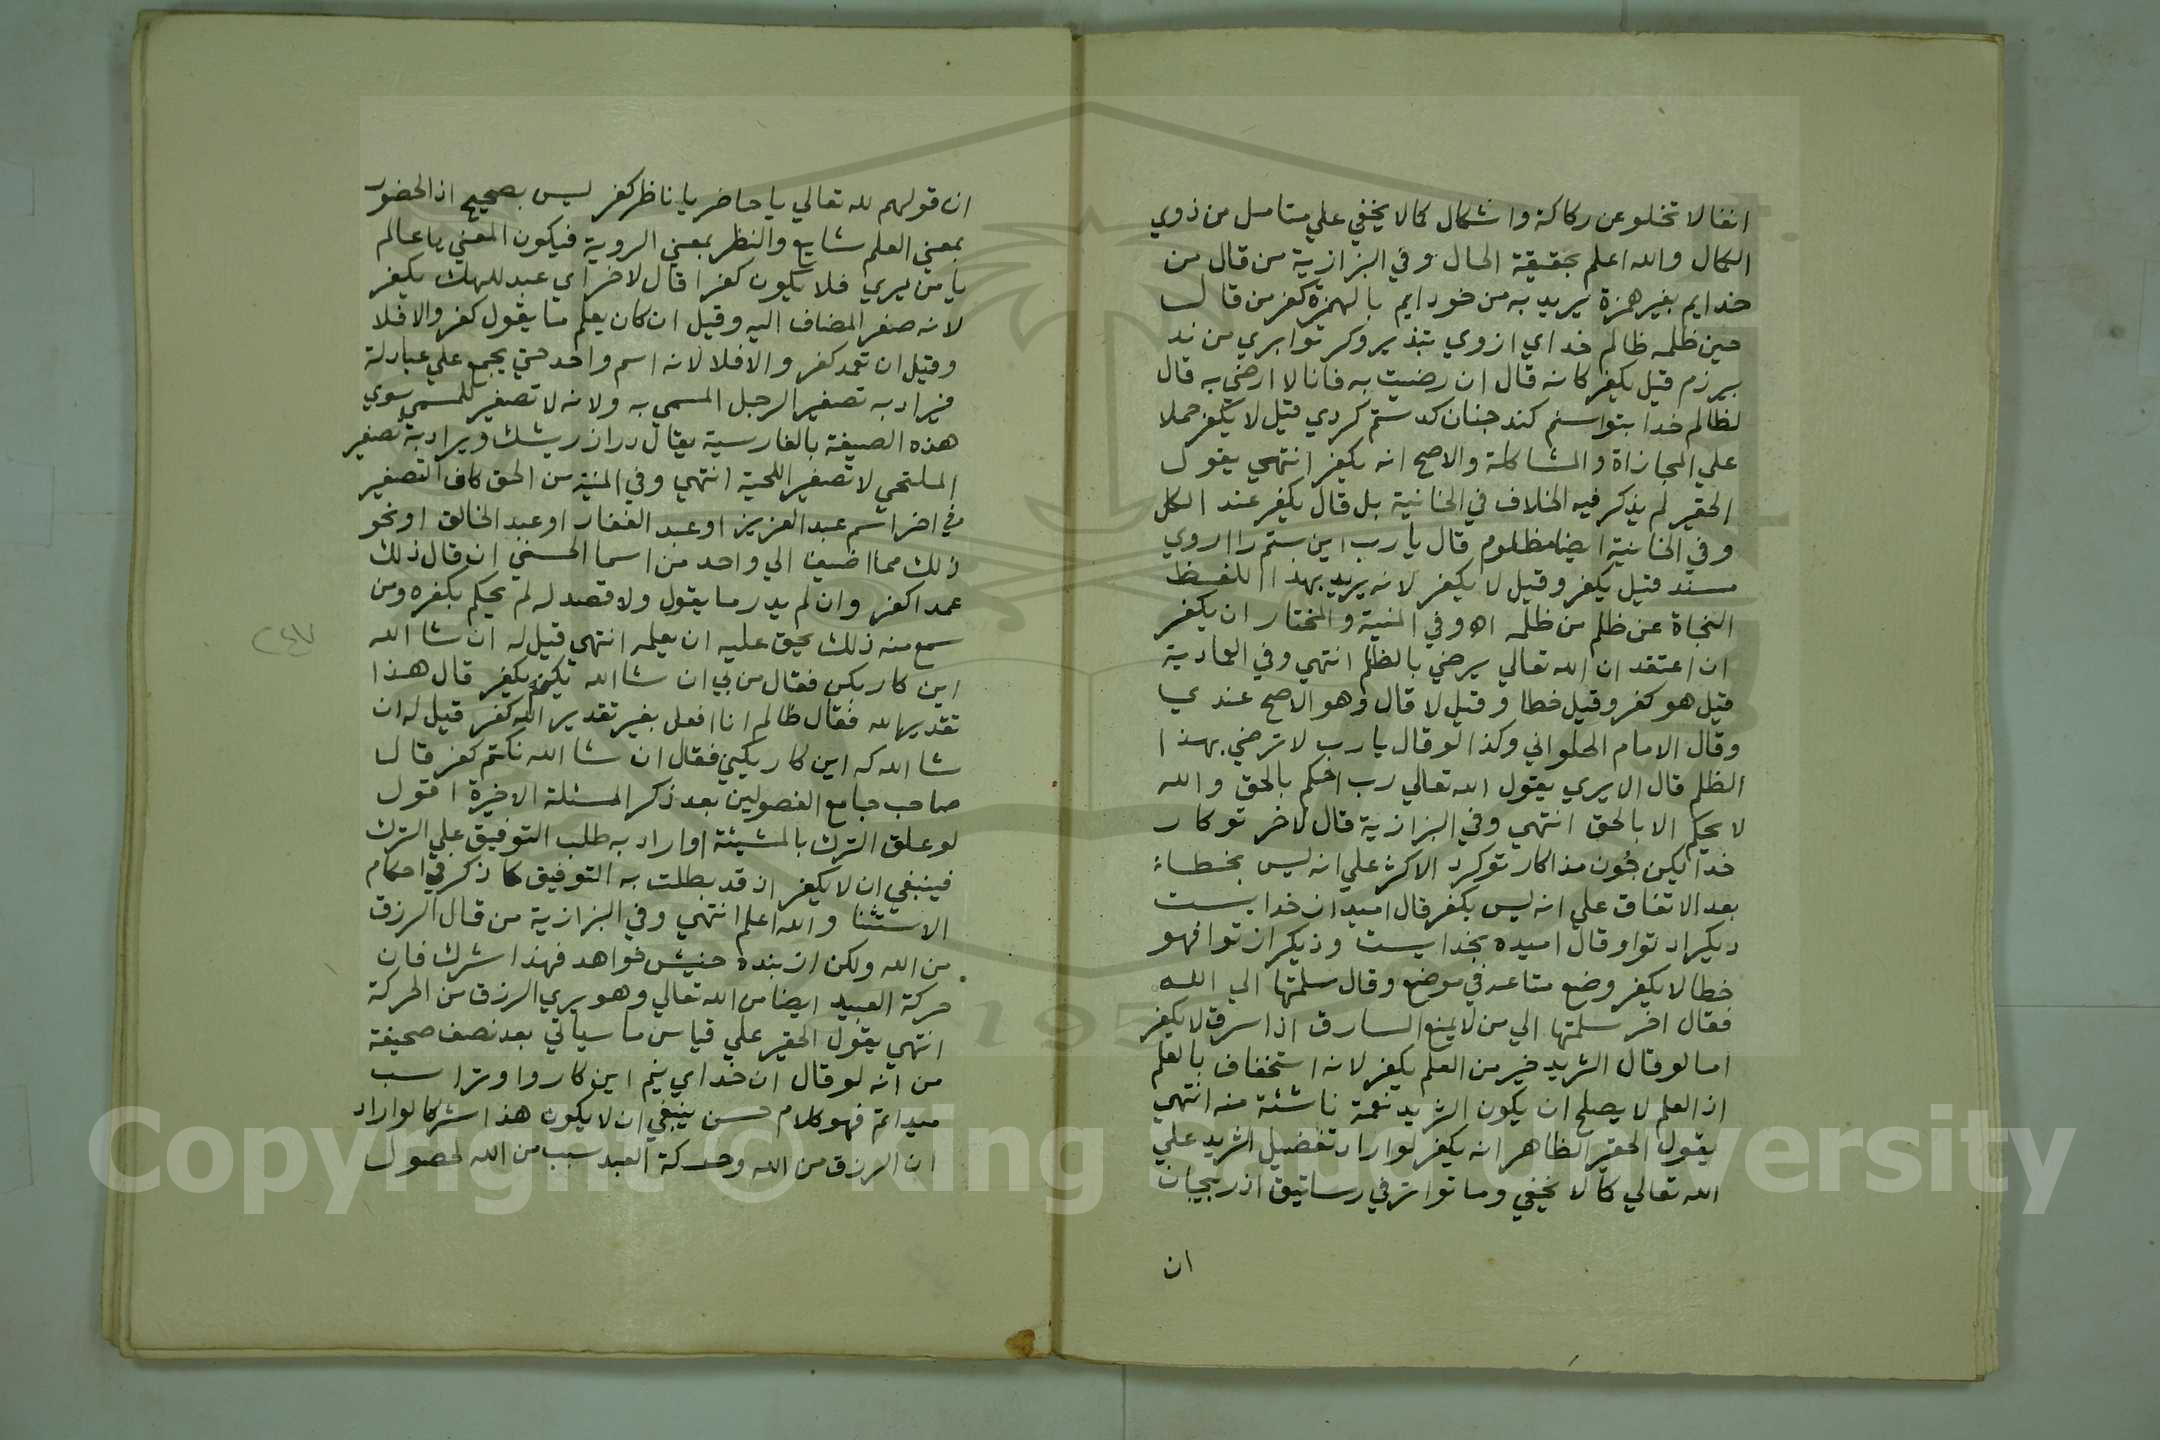 انفا لا تخلو عن ركاكة واشكال كما لا يخفي علي متامل من ذوي
الكمال والله اعلم بحقيقة الحال وفي البزازية من قال من
خدايم بغير همزة يريد به من خود ايم بالهمزة كفر من قال
حين ظلمه ظالم خداي از وي بتذير وكر توابري من ند
ببرزم قيل يكفر كانه قال ان رضيت به فانا لا ارضي به قال
لظالم خدا بتو استم كند جنان كه ستم كردي قيل لا يكفر حملا
علي المجازاة والمشاكلة والاصح انه يكفر انتهي يقول
الحقير لم يذكر فيه الخلاف في الخانية بل قال يكفر عند الكل
وفي الخانية ايضا مظلوم قال يا رب اين ستم را ازوي
مسند قيل يكفر وقيل لا يكفر لانه يريد بهذا اللفظ
النجاة عن ظلم من ظلمه اه وفي المنية والمختار ان يكفر
ان اعتقد ان الله تعالي يرضي بالظلم انتهي وفي العمادية
قيل هو كفر وقيل خطا وقيل لا قال وهو الاصح عندي
وقال الامام الحلواني وكذا لو قال يا رب لا ترضي بهذا
الظلم قال الا يري يقول الله تعالي رب احكم بالحق والله
لا يحكم الا بالحق انتهي وفي البزازية قال لاخر تو كار
خدا بكن جون مذا كار تو كرد الاكثر علي انه ليس بخطاء
بعد الاتفاق علي انه ليس بكفر قال اميد از خدايست
ديكر از توا وقال اميده بخدايست وذيكر از توا فهو
خطا لا يكفر وضع متاعه في موضع وقال سلمتها الي الله
فقال اخر سلمتها الي من لا يمنع السارق اذا سرق لا يكفر
اما لو قال الثريد خير من العلم يكفر لانه استخفاف بالعلم
اذ العلم لا يصلح ان يكون الثريد نعمة ناشئة منه انتهي
يقول الحقير الظاهر انه يكفر لو اراد تفضيل الثريد علي
الله تعالي كما لا يخفي وما تواتر في رساتيق اذربيجان
ان
ان قولهم لله تعالي يا حاضر يا ناظر كفر ليس بصحيح اذ الحضور
بمعني العلم شايع والنظر بمعني الروية فيكون المعني يا عالم
يا من يري فلا يكون كفرا قال لاخر اي عبد للهك يكفر
لانه صغر المضاف اليه وقيل ان كان يعلم ما يقول كفر والا فلا
وقيل ان تعمد كفر والا فلا لانه اسم واحد حتي يجمع علي عبادلة
فيراد به تصغير الرجل المسمي به ولانه لا تصغير للمسمي سوي
هذه الصيغة بالفارسية يقال دراز ريشك ويراد به تصغير
الملتحي لا تصغير اللحية انتهي وفي المنية من الحق كاف التصغير
في اخر اسم عبد العزيز او عبد الغفار او عبد الخالق او نحو
ذلك مما اضيف الي واحد من اسما الحسني ان قال ذلك
عمدا كفر وان لم يدر ما يقول ولا قصد له لم يحكم بكفره ومن
سمع منه ذلك يحق عليه ان يعلمه انتهي قيل له ان شا الله
٢٤٧
اين كار بكن فقال من بي ان شا الله بكنم يكفر قال هذا
تقدير الله فقال ظالم انا افعل بغير تقدير الله كفر قيل له ان
شا الله كه اين كار بكني فقال ان شا الله نكنم كفر قال
صاحب جامع الفصولين بعد ذكر المسئلة الاخيرة اقول
لو علق الترك بالمشيئة او اراد به طلب التوفيق علي الترك
فينبغي ان لا يكفر اذ قد يطلب به التوفيق كما ذكر في احكام
الاستثنا والله اعلم انتهي وفي البزازية من قال الرزق
من الله ولكن از بنده جنبش خواهد فهذا شرك فان
حركة العبيد ايضا من الله تعالي وهو يري الرزق من الحركة
انتهي يقول الحقير علي قياس ما سياتي بعد نصف صحيفة
من انه لو قال ان خداي بنم اين كار وا وترا سب
ميدانم فهو كلام حسن ينبغي ان لا يكون هذا شركا لو اراد
ان الرزق من الله وحركة العبد سبب من الله لحصول
Copyright © King Saud University
1957